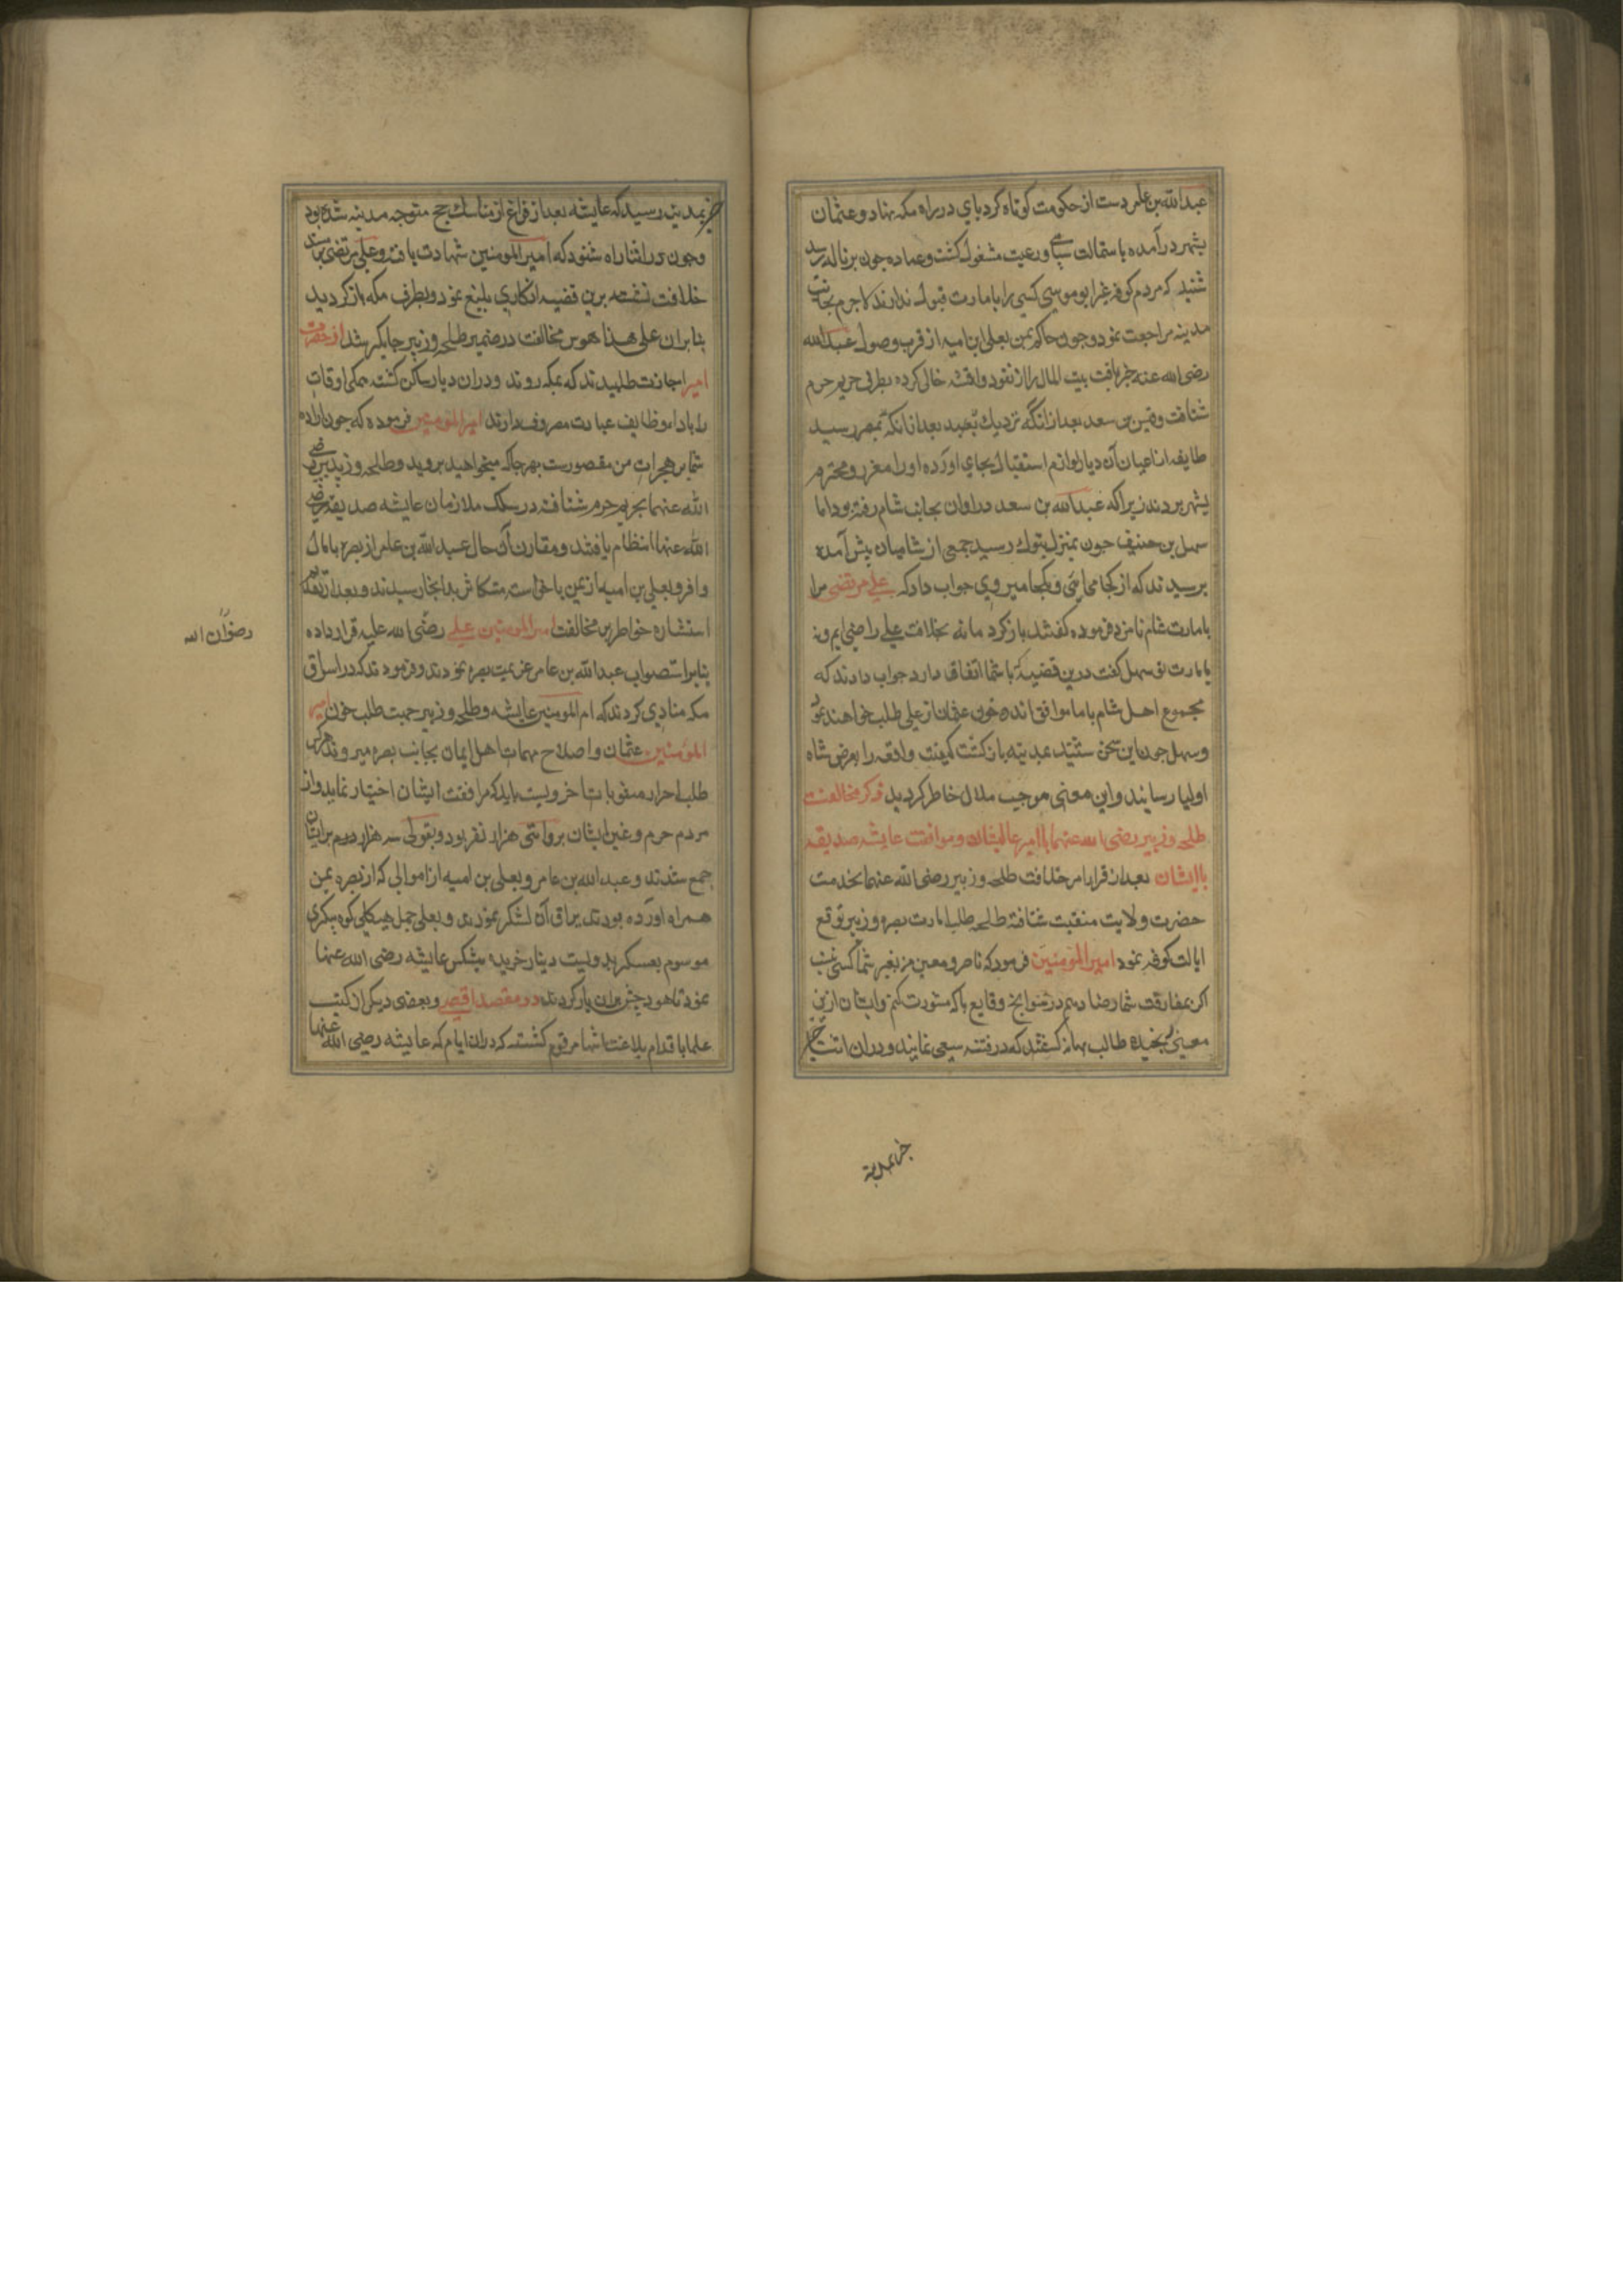 عبدالله بن عامر دست از حکومت کوتاه کرد پای در راه مکه نهاد و عثمان
بشهر درآمده باستمالت سپاهی و رعیت مشغول کشت و عماره جون بزباله رسید
شنید که مردم کوفه غیر ابو موسی کسی را بامارت قبول ندارند لاجرم بجانب
مدینه مراجعت نمود و جون حاکم یمن یعلی ابن امیه از قرب وصول عبدالله
رضی الله عنه خبر یافت بیت المال را از نقود و اقمشه خالی کرده بطرف حریم حرم
شتافت و قیس بن سعد بعد از انکه نزدیک بمصر رسید
طایفه از اعیان آن دیار لوازم استقبال بجای اورده اورا معزز و محترم
بشهر بردند زیرا که عبدالله بن سعد دران اوان بجانب شام رفته بود اما
سهل بن حنیف جون بمنزل تبوک رسید جمعی از شامیان پیش آمده
پرسیدند که از کجا می ائی و بکجا میروی جواب داد که علی مرتضی مرا
بامارت شام نامزد فرموده کفتند باز کرد ما نه بخلافت علی راضی ایم و نه
بامارت تو سهل کفت درین قضیه با شما اتفاق دارد جواب دادند که
مجموع اهل شام با ما موافق اند و خون عثمان از علی طلب خواهند نمود
و سهل جون این سخن شنید بمدینه باز کشت کیفیت واقعه را بعرض شاه
اولیا رسانید و این معنی موجب ملال خاطر کردید ذکر مخالفت
طلحه و زبیر رضی الله عنهما با امیر عالیشان و موافقت عایشه صدیقه
با ایشان بعد از قرار امر خلافت طلحه و زبیر رضی الله عنهما بخدمت
حضرت ولایت منقبت شتافته طلحه طلب امارت بصره و زبیر توقع
ایالت کوفه نمود امیر المومنین فرمود که ناصر و معین من بغیر شما کسی نیست
اکر بمفارقت شما رضا دهم در سوانح وقایع با که مشورت کنم و ایشان ازین
معنی رنجیده طالب بهانه کشتند که در فتنه سعی نمایند و دران اثنا خبر
خبر بمدینه
خبر بمدینه رسید که عایشه بعد از فراغ از مناسک حج متوجه مدینه شده بود
و جون در اثناء راه شنود که امیر المومنین شهادت یافته و علی مرتضی بر مسند
خلافت نشسته برین قضیه انکاری بلیغ نمود و بطرف مکه باز کردید
بنابران علی هذا هوس مخالفت در ضمیر طلحه و زبیر جایکیر شد از حضرت
امیر اجازت طلبیدند که بمکه روند و دران دیار ساکن کشته همکی اوقات
را باداء وظایف عبادت مصروف دارند امیر المومنین فرموده که جون اراده
شما بر هجرات من مقصورست بهرجا که میخواهید بروید و طلحه و زبیر رضی
الله عنهما بحریم حرم شتافته در سلک ملازمان عایشه صدیقه رضی
الله عنها انتظام یافتند و مقارن آن حال عبد الله بن عامر از بصره با مال
وافر و یعلی بن امیه از یمن بدانجا رسیدند و بعد از تقدیم
استشاره خواطر بر مخالفت امیر المومنین علی رضی الله علیه قرار داده
رضوان الله
بنابر استصواب عبد الله بن عامر عزیمت بصره نمودند و فرمودند که در اسواق
مکه منادی کردند که ام المومنین عایشه و طلحه و زبیر جهت طلب خون امیر
المومنین عثمان و اصلاح مهمات اهل ایمان بجانب بصره میروند هر کس
طلب احراز مثوبات اخرویست باید که مرافقت ایشان اختیار نماید و از
مردم حرم و غیر ایشان بروایتی هزار نفر بود و بقولی سه هزار مردم بر ایشان
جمع شدند و عبد الله بن عامر و یعلی بن امیه از اموالی که از بصره و یمن
همراه اورده بودند یراق آن لشکر نمودند و یعلی جمل هیکلی کوه پیکری
موسوم بعسکر بدویست دینار خریده پیشکش عایشه رضی الله عنها
نمود تا هودج بران بار کردند در مقصد اقصی و بعضی دیکر از کتب
علما باقدام بلاغت انتما مرقوم کشته که دران ایام که عایشه رضی الله عنها